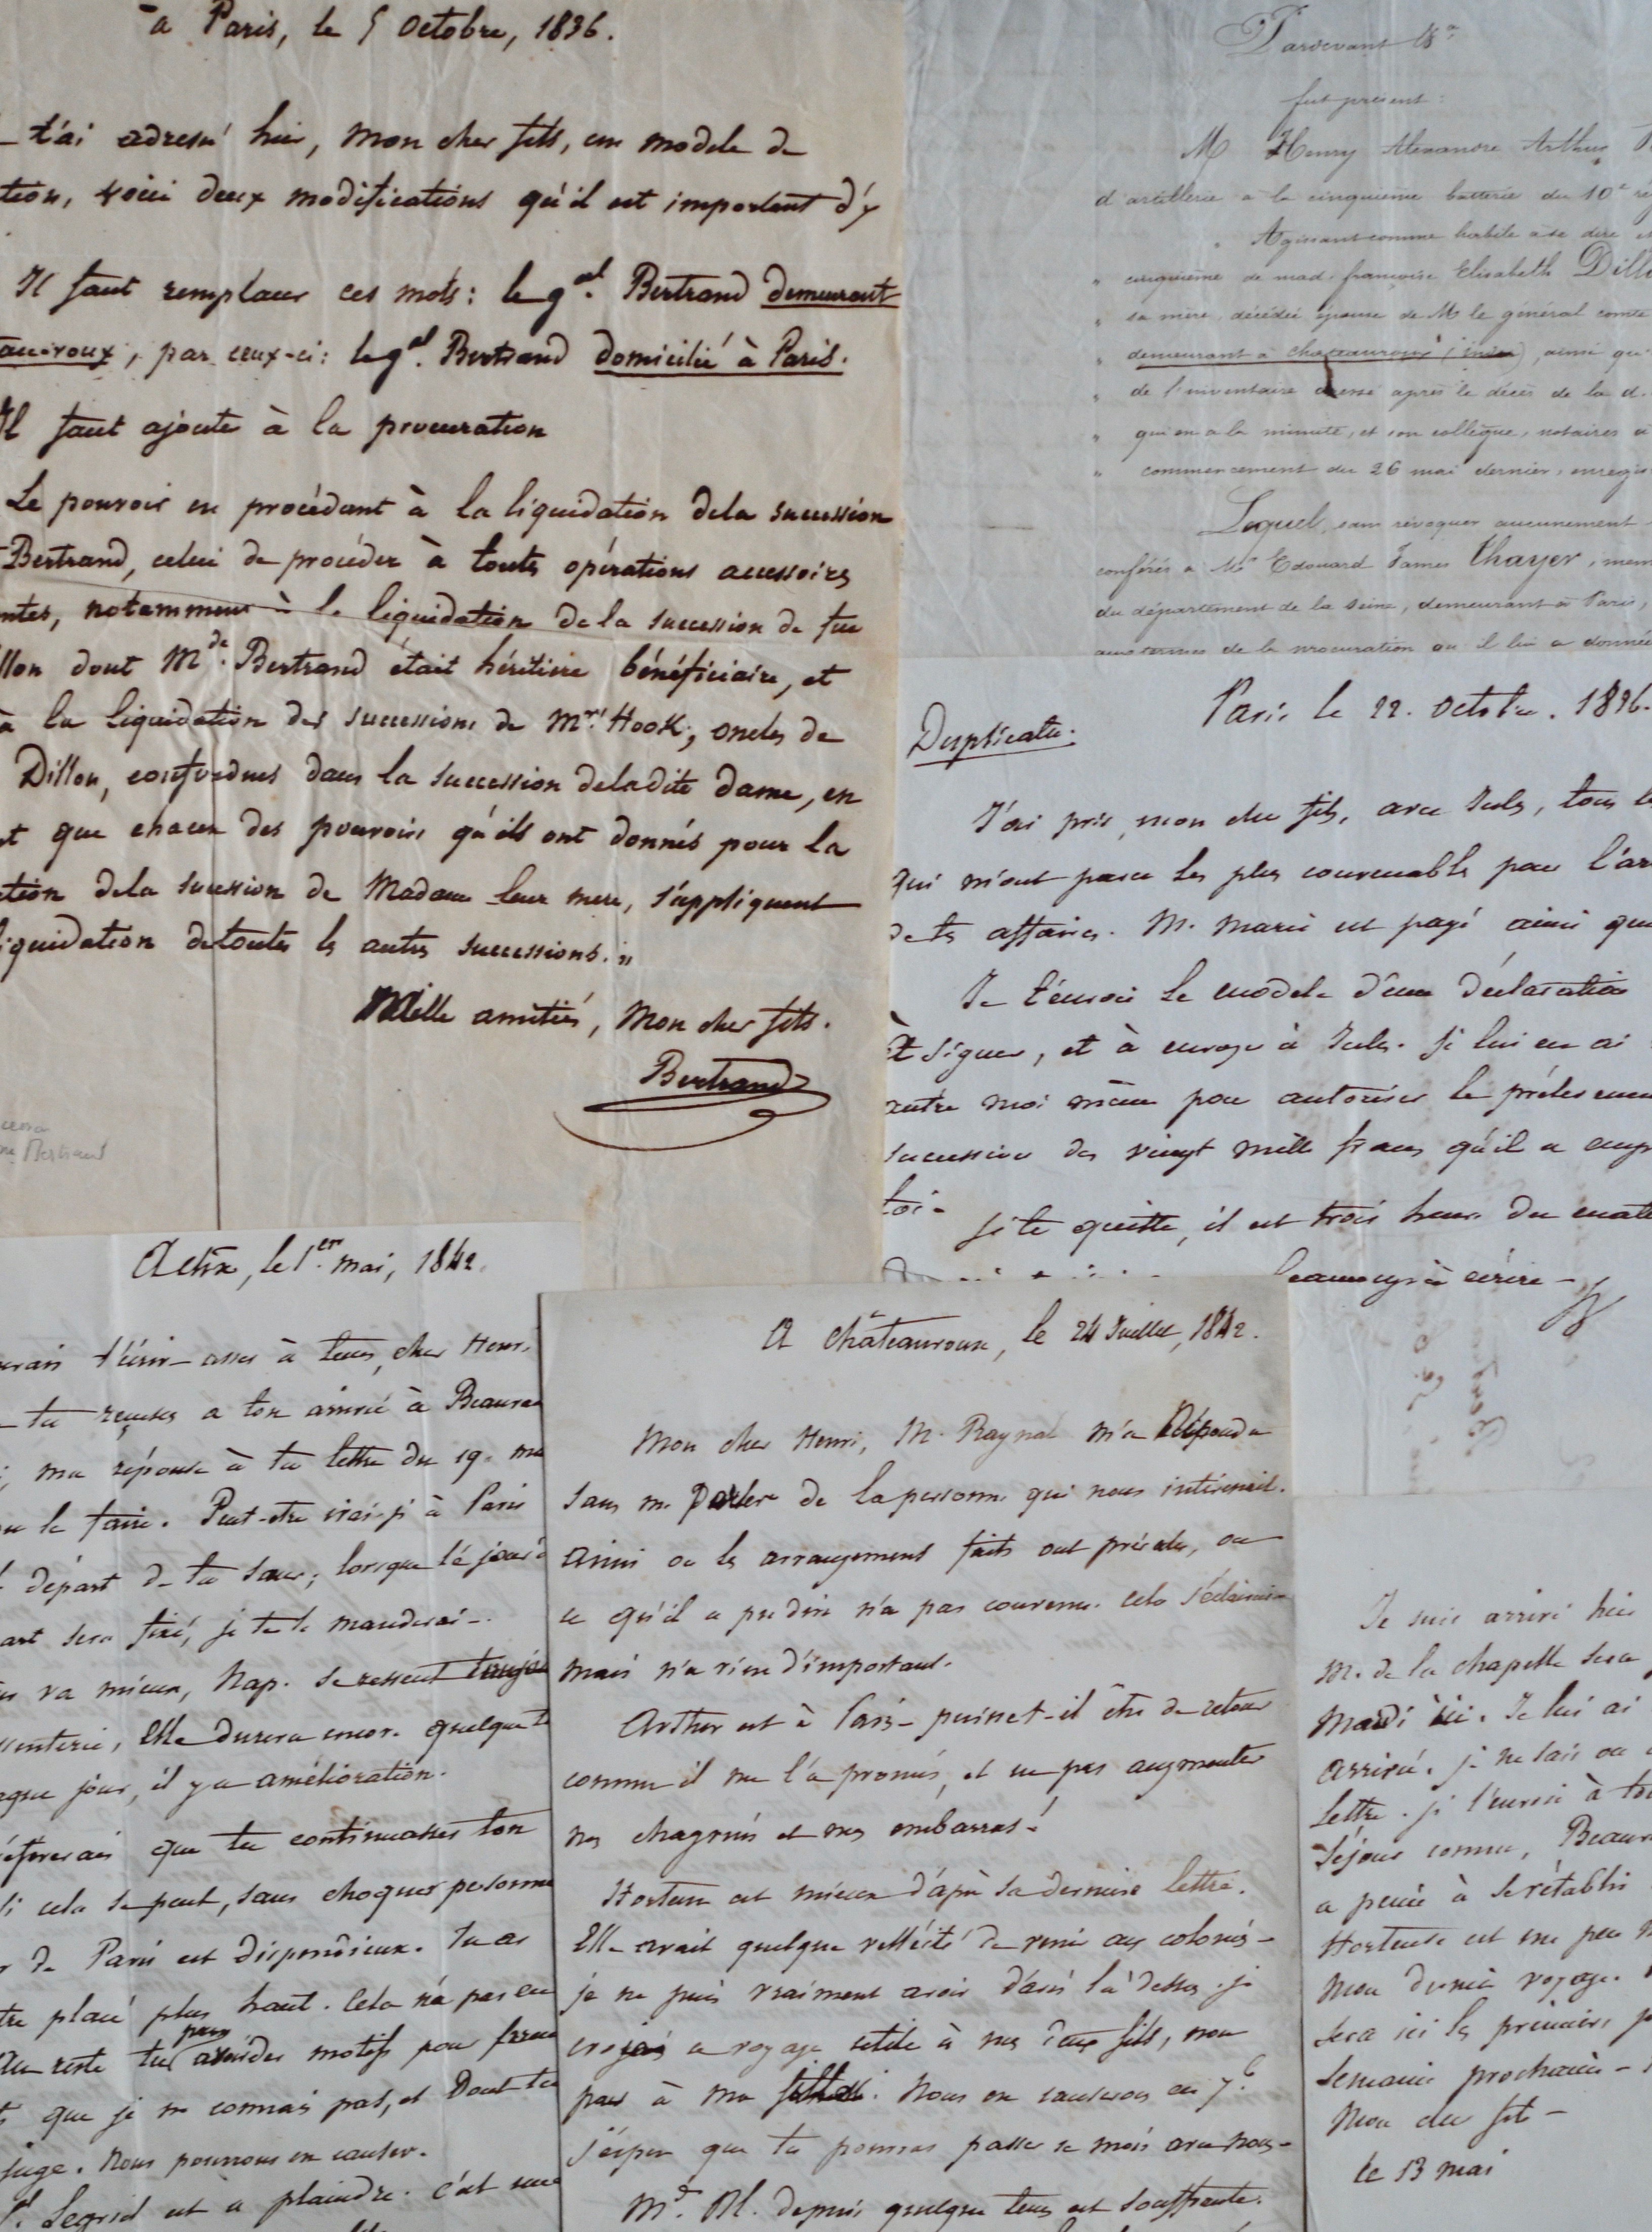 a Paris, le 5 octobre, 1836.
t'ai adressé hier, mon cher fils, un modele de
tion, voici deux modifications qu'il est important d'y
Il faut remplacer ces mots: le gal. Bertrand demeurant
auroux, par ceux-ci: le gal. Bertrand domicilié à Paris.
Il faut ajouter à la procuration
Le pouvoir en procédant à la liquidation dela succession
Bertrand, celui de procéder à toutes opérations accessoires
ntes, notamment à la liquidation de la succession de feu
llon dont Mde. Bertrand était héritiere bénéficiaire, et
à la liquidation des successions de Mrs. Hook, oncles de
Dillon, confondues dans la succession deladite dame, en
t que chacun des pouvoirs qu'ils ont donnés pour la
ation dela succession de Madame leur mere, s'appliquent
liquidation detoutes les autres successions."
Mille amitiés, mon cher fils.
Bertrand
Pardevant Me
fut présent:
M Henry Alexandre Arthur
d'artillerie a la cinquième batterie du 10e ré
" Agissant comme habile à se dire
" cinquième de mad. françoise Elisabeth Dillo
" sa mère, décédée épouse de M le général comte
" demeurant à chateauroux (indre), ainsi qu
" de l'inventaire dressé après le décès de la d.
" qui en a la minute, et son collègue, notaires à
" commencement du 26 mai dernier, enregis
Lequel, sans révoquer aucunement
conférés a Mr Edouard James Thayer, mem
du département de la Seine, demeurant à Paris,
aux termes de la procuration qu'il lui a donnée
Duplicata.
Paris le 22. octobre. 1836.
J'ai pris, mon cher fils, avec Jules, tous le
qui m'ont paru les plus convenables pour l'ar
de tes affaires. M. Marie est payé ainsi que
Je t'envoie le modele d'une déclaration
à signer, et à envoyer à Jules. Je lui en ai
autre moi même pour autoriser le prélevemen
succession des vingt mille francs qu'il a emp
toi-
Je te quitte, il est trois heures du mati
beaucoup à écrire -
le 1er. mai, 1842.
urais t'écrire assez à tems, cher Henri
tu reçusses a ton arrivée à Beauvea
ma réponse à ta lettre du 19. ma
la faire. Peut-etre irai-je à Paris
départ de ta soeur; lorsque le jour d
art sera fixé, je te le manderai-.
va mieux, Nap. se ressent toujou
ssenterie, Elle durera encore quelque t
aque jour, il y a amélioration.
éfererais que tu continuasses ton
si cela se peut, sans choquer personne
de Paris est dispendieux. tu as
tre placé plus haut. Cela n'a pas eu
Au reste tu peux avoir des motifs pour
que je ne connais pas, et Dont tu
juge. Nous pourrons en causer.
est a plaindre. c'est une
A Châteauroux, le 24 Juillet, 1842.
Mon cher Henri, M. Raynal m'a Répondu
sans me Parler de la personne qui nous intéressait.
Ainsi ou les arrangemens faits ont prévalu, ou
ce qu'il a pu dire n'a pas convenu. cela s'éclaircira
mais n'a rien d'important.
Arthur est à Paris - puisse-t-il être de retour
comme il me l'a promis, et ne pas augmenter
nos chagrins et nos embarras!
Hortense est mieux d'après sa derniere lettre.
Elle avait quelque velléité de venir aux colonies -
je ne puis vraiment avoir d'avis là dessus. je
croyais ce voyage utile à mes deux fils, non
pas à ma fille. Nous en causerons en 7e.
j'espere que tu pourras passer ce mois avec nous -
depuis quelque tems est souffrante.
Je suis arrivé hier
M. de la chapelle sera
mardi ici. Je lui ai
arrivé. je ne sais ou
lettre. je l'envoie à toi
séjour connu, Beauv
a peine à se rétablir
Hortense est un peu
mon dernier voyage.
sera ici les premiers j
semaine prochaine -
mon cher fils -
le 13 mai